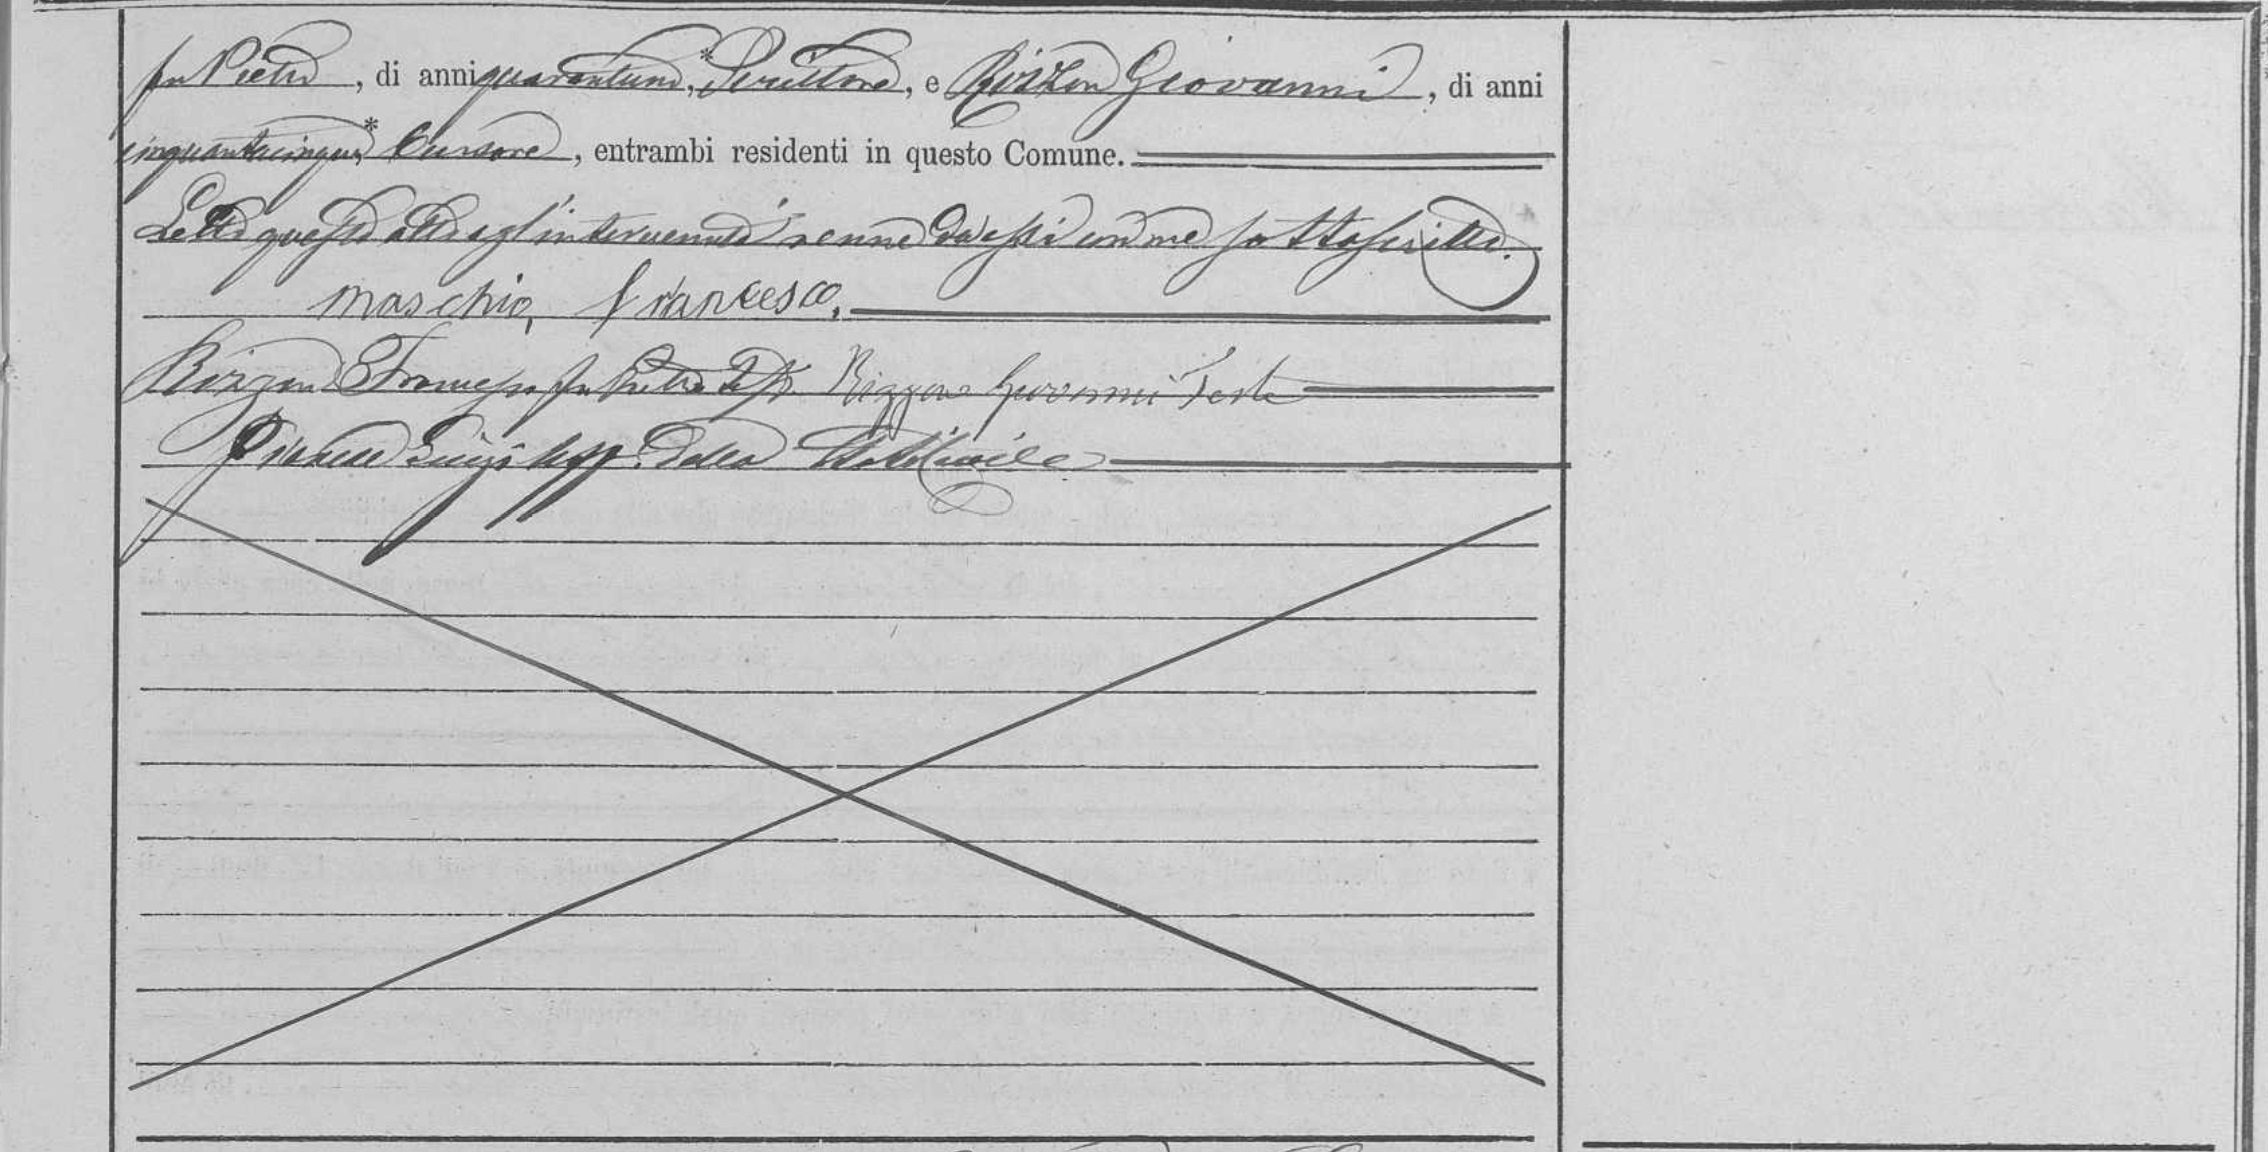 fu Pietro, di anni quarantuno, *Scrittore, e Rizzon Giovanni, di anni
cinquantacinque,* Cursore, entrambi residenti in questo Comune.
Letto questo atto agl'intervenuti venne da essi con me sottoscritto.
Maschio, Francesco.
Rizzon Francesco fu Pietro test. Rizzon Giovanni Teste
Luigi Uff. dello Stato Civile